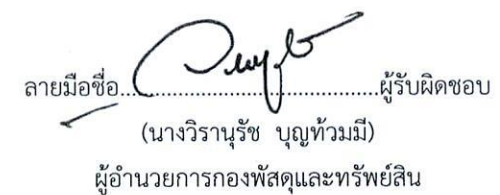 ลายมือชื่อ..............................................ผู้รับผิดชอบ
(นางวิรานุรัช บุญท้วมมี)
ผู้อำนวยการกองพัสดุและทรัพย์สิน